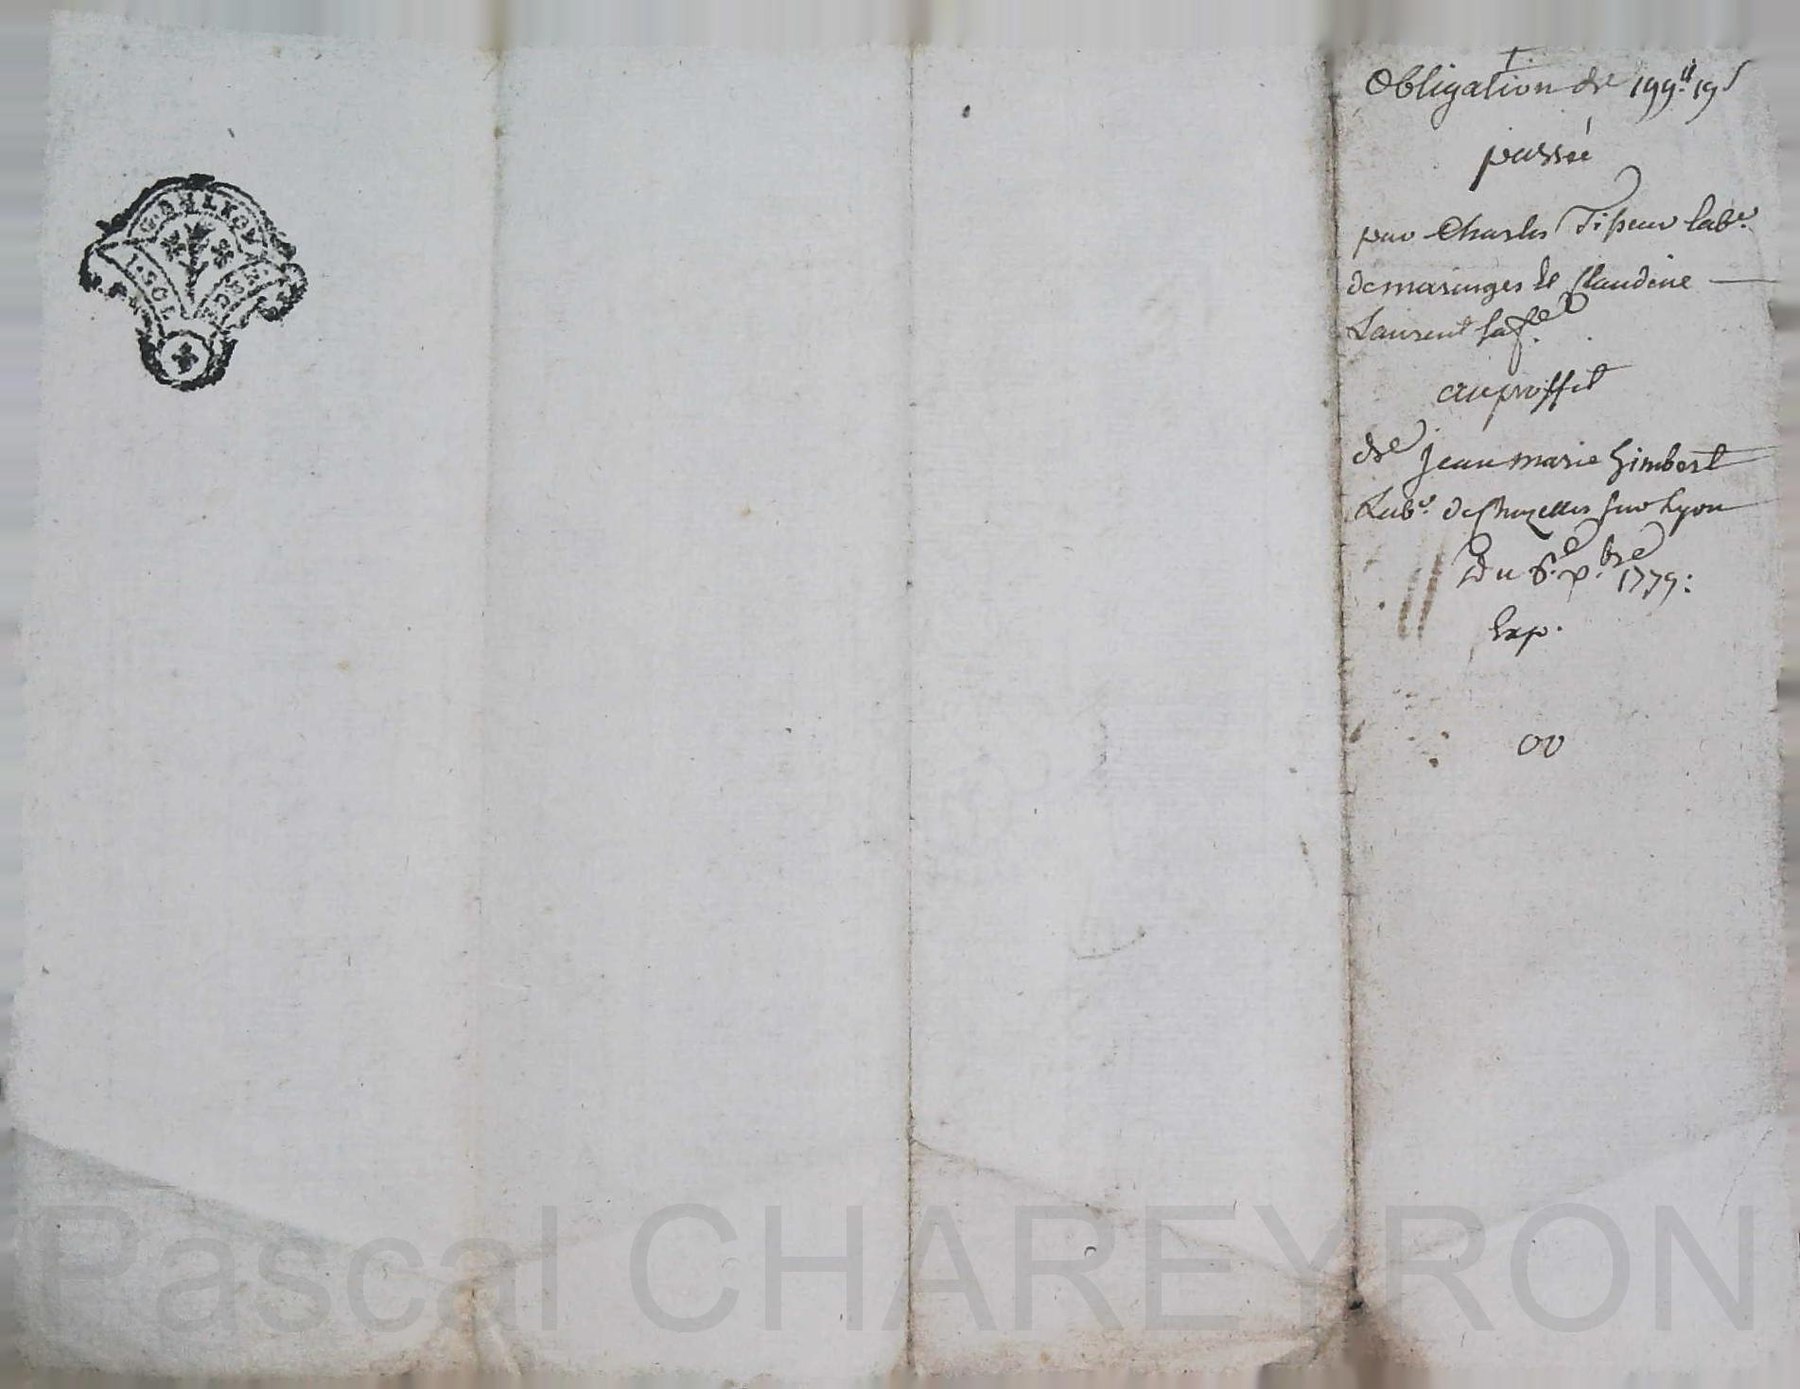 Obligation de 199ᵗᵗ 19ˢ
passée
par Charles Tiseur labʳ.
de maringes et Claudine
Laurent sa fᵉ.
au proffit
de Jean marie Gimbert
Labʳ. de Chazelles sur Lyon
Du 6ᵉ. xᵇʳᵉ 1779:
Exp.
Pascal CHAREYRON